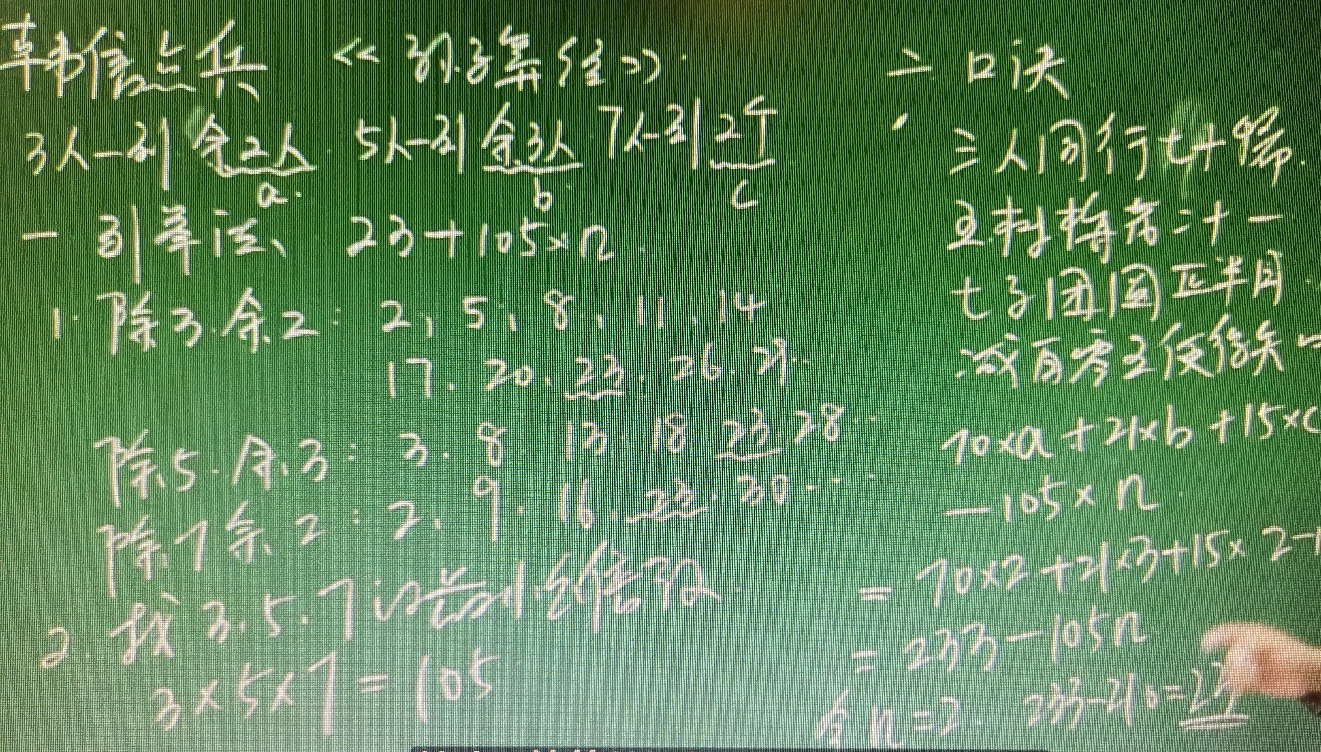 韩信点兵 《孙子算经》
3人一列余2人 5人一列余3人 7人一列2个
a. b c
一 列举法、 23+105×n
1. 除3.余2: 2, 5, 8, 11, 14
17. 20. 23. 26. 29..
除5.余3: 3. 8 13 18 23 28..
除7余2: 2. 9. 16. 23. 30...
2. 找3.5.7的最小公倍数
3×5×7=105
二 口诀
三人同行七十稀.
五树梅花二十一
七子团圆正半月
减百零五便得知
70×a+21×b+15×c
-105×n
=70×2+21×3+15×2-
=233-105n
令n=2. 233-210=23